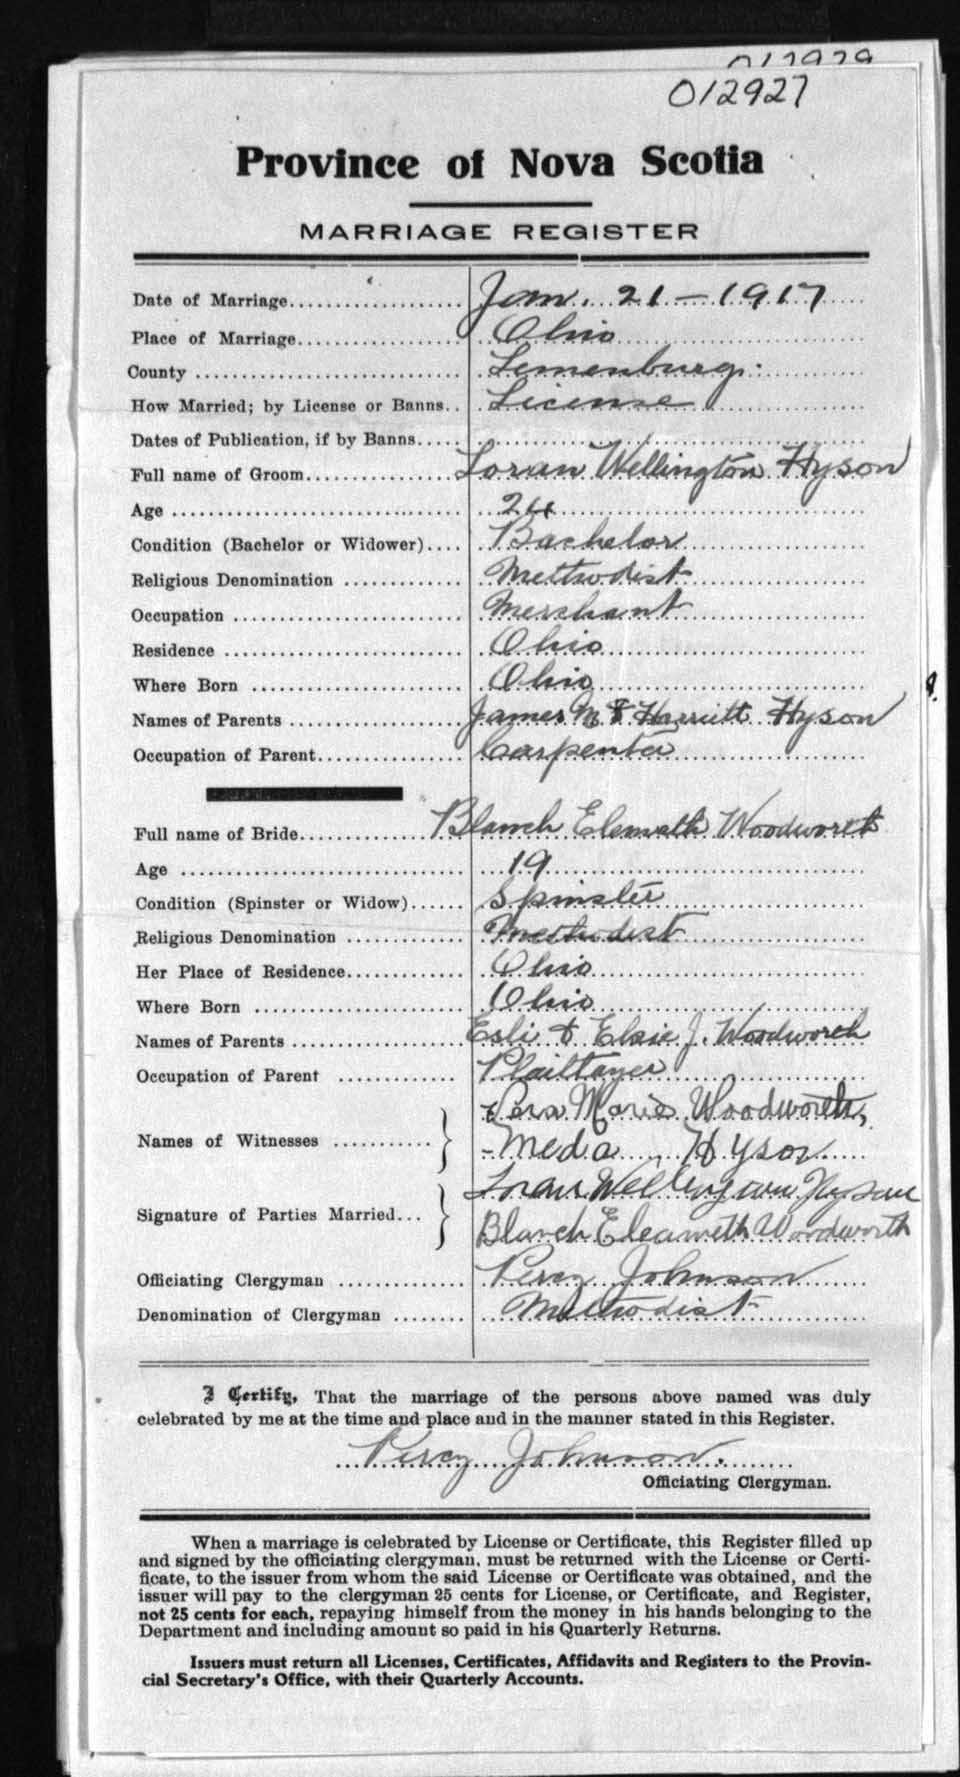 012929
012927
Province of Nova Scotia
MARRIAGE REGISTER
Date of Marriage Jan. 21 - 1917
Place of Marriage Ohio
County Lunenburg.
How Married; by License or Banns License
Dates of Publication, if by Banns
Full name of Groom Loran Wellington Hyson
Age 24
Condition (Bachelor or Widower) Bachelor
Religious Denomination Methodist
Occupation Merchant
Residence Ohio
Where Born Ohio
Names of Parents James M & Harriett Hyson
Occupation of Parent Carpenter
Full name of Bride Blanch Woodworth
Age 19
Condition (Spinster or Widow) Spinster
Religious Denomination Methodist
Her Place of Residence Ohio
Where Born Ohio
Names of Parents Esli & Elsie J. Woodworth
Occupation of Parent
Names of Witnesses Marie Woodworth,
- Meda Hyson
Signature of Parties Married Loran Wellington Hyson
Blanch Woodworth
Officiating Clergyman Percy Johnson
Denomination of Clergyman Methodist
I Certify, That the marriage of the persons above named was duly
celebrated by me at the time and place and in the manner stated in this Register.
Percy Johnson.
Officiating Clergyman.
When a marriage is celebrated by License or Certificate, this Register filled up
and signed by the officiating clergyman, must be returned with the License or Certi-
ficate, to the issuer from whom the said License or Certificate was obtained, and the
issuer will pay to the clergyman 25 cents for License, or Certificate, and Register,
not 25 cents for each, repaying himself from the money in his hands belonging to the
Department and including amount so paid in his Quarterly Returns.
Issuers must return all Licenses, Certificates, Affidavits and Registers to the Provin-
cial Secretary's Office, with their Quarterly Accounts.